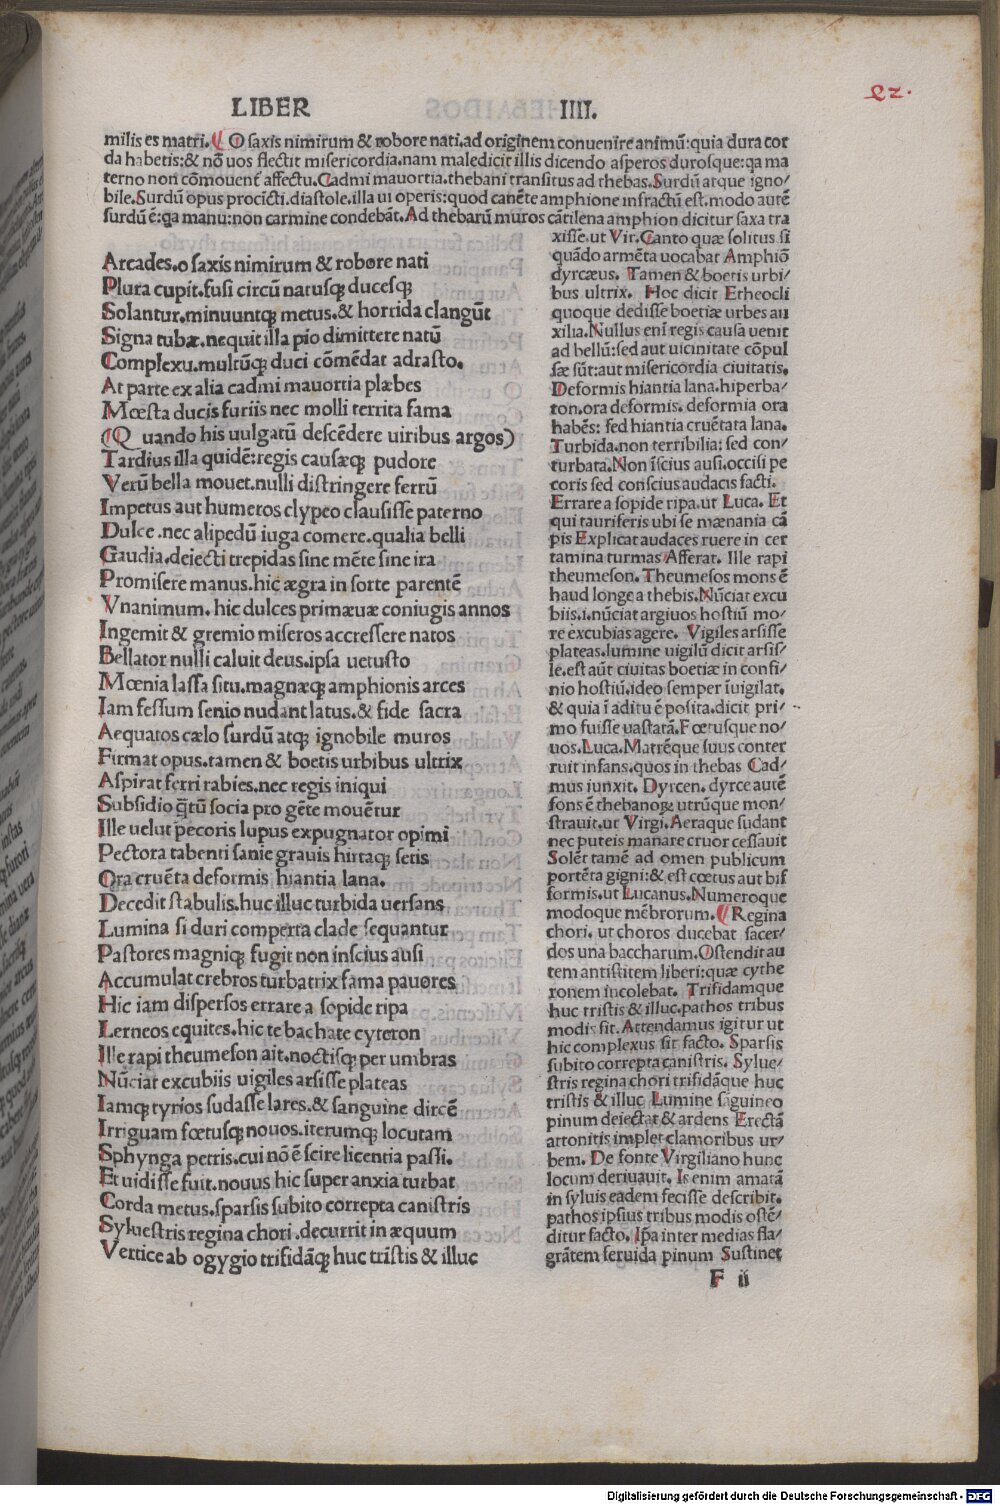 LIBER IIII.
82.
milis es matri. ¶ O saxis nimirum & robore nati. ad originem conuenire animũ: quia dura cor
da habetis: & nõ uos flectit misericordia. nam maledicit illis dicendo asperos durosque: qa ma
terno non cõmouent᷑ affectu. Cadmi mauortia. thebani transitus ad thebas. Surdũ atque igno/
bile. Surdũ opus procicti. diastole. illa ui operis: quod canẽte amphione infractũ est. modo autẽ
surdũ ẽ: qa manu: non carmine condebãt. Ad thebarũ muros cãtilena amphion dicitur saxa tra
Arcades. o saxis nimirum & robore nati
Plura cupit. fusi circũ natusq; ducesq;
Solantur. minuuntq; metus. & horrida clangũt
Signa tubæ. nequit illa pio dimittere natũ
Complexu. multũq; duci cõmẽdat adrasto.
At parte ex alia cadmi mauortia plæbes
Mœsta ducis furiis nec molli territa fama
(Quando his uulgatũ descẽdere uiribus argos)
Tardius illa quidẽ: regis causæq; pudore
Verũ bella mouet. nulli distringere ferrũ
Impetus aut humeros clypeo clausisse paterno
Dulce. nec alipedũ iuga comere. qualia belli
Gaudia. deiecti trepidas sine mẽte sine ira
Promisere manus. hic ægra in sorte parentẽ
Vnanimum. hic dulces primæuæ coniugis annos
Ingemit & gremio miseros accressere natos
Bellator nulli caluit deus. ipsa uetusto
Mœnia lassa situ. magnæq; amphionis arces
Iam fessum senio nudant latus. & fide sacra
Aequatos cælo surdũ atq; ignobile muros
Firmat opus. tamen & boetis urbibus ultrix
Aspirat ferri rabies. nec regis iniqui
Subsidio q̃tũ socia pro gẽte mouẽtur
Ille uelut pecoris lupus expugnator opimi
Pectora tabenti sanie grauis hirtaq; setis
Ora cruẽta deformis hiantia lana.
Decedit stabulis. huc illuc turbida uersans
Lumina si duri comperta clade sequantur
Pastores magniq; fugit non inscius ausi
Accumulat crebros turbatrix fama pauores
Hic iam dispersos errare a sopide ripa
Lerneos equites. hic te bachate cyteron
Ille rapi theumeson ait. noctisq; per umbras
Nũciat excubiis uigiles arsisse plateas
Iamq; tyrios sudasse lares. & sanguine dircẽ
Irriguam fœtusq; nouos. iterumq; locutam
Sphynga petris. cui nõ ẽ scire licentia passi.
Et uidisse fuit. nouus hic super anxia turbat
Corda metus. sparsis subito correpta canistris
Syluestris regina chori. decurrit in æquum
Vertice ab ogygio trifidãq; huc tristis & illuc
xisse. ut Vir. Canto quæ solitus si
quãdo armẽta uocabat Amphiõ
dyrcæus. Tamen & boetis urbi/
bus ultrix. Hoc dicit Etheocli
quoque dedisse boetiæ urbes au
xilia. Nullus eni᷑ regis causa uenit
ad bellũ: sed aut uicinitate cõpul
sæ sũt: aut misericordia ciuitatis.
Deformis hiantia lana. hiperba/
ton. ora deformis. deformia ora
habẽs: sed hiantia cruẽtata lana.
Turbida. non terribilia: sed con/
turbata. Non ĩscius ausi. occisi pe
coris sed conscius audacis facti.
Errare a sopide ripa. ut Luca. Et
qui tauriferis ubi se mænania cã
pis Explicat audaces ruere in cer
tamina turmas Afferat. Ille rapi
theumeson. Theumesos mons ẽ
haud longe a thebis. Nũciat excu
biis. i. nũciat argiuos hostiũ mo/
re excubias agere. Vigiles arsisse
plateas. lumine uigilũ dicit arsis/
se. est aũt ciuitas boetiæ in confi/
nio hostiũ. ideo semper ĩuigilat.
& quia ĩ aditu ẽ posita. dicit pri/
mo fuisse uastatã. Fœtusque no/
uos. Luca. Matrẽque suus conter
ruit infans. quos in thebas Cad/
mus iunxit. Dyrcen. dyrce autẽ
fons ẽ thebanoꝝ utrũque mon/
strauit. ut Virgi. Aeraque sudant
nec puteis manare cruor cessauit
Solẽt tamẽ ad omen publicum
portẽta gigni: & est cœtus aut bif
formis. ut Lucanus. Numeroque
modoque mẽbrorum. ¶ Regina
chori. ut choros ducebat sacer/
dos una baccharum. Ostendit au
tem antistitem liberi: quæ cythe
ronem incolebat. Trifidamque
huc tristis & illuc. pathos tribus
modis fit. Attendamus igitur ut
hic complexus sit facto. Sparsis
subito correpta canistris. Sylue/
stris regina chori trifidãque huc
tristis & illuc Lumine sãguineo
pinum deiectat & ardens Erectã
attonitis implet clamoribus ur/
bem. De fonte Virgiliano hunc
locum deriuauit. Is enim amatã
in syluis eadem fecisse describit.
pathos ipsius tribus modis ostẽ/
ditur facto. Ipa inter medias fla/
grãtem feruida pinum Sustinet
F ii
Digitalisierung gefördert durch die Deutsche Forschungsgemeinschaft - DFG